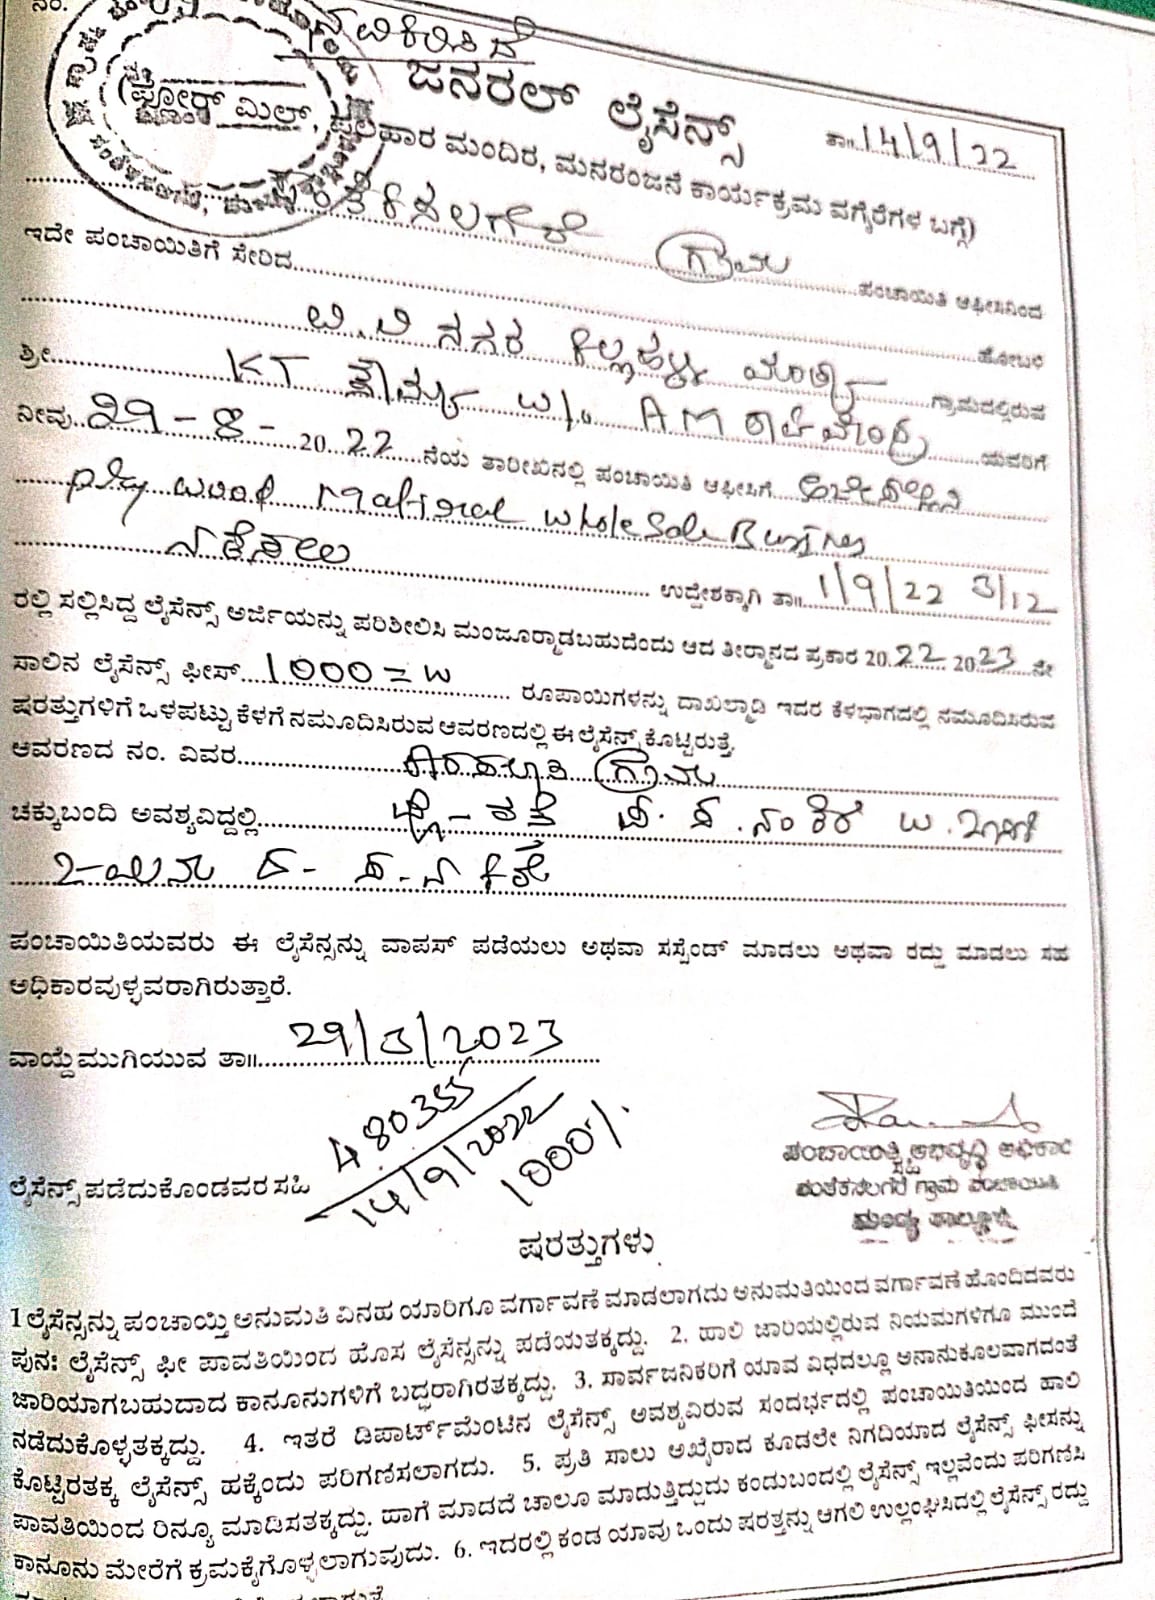 ನಂ.
ಜನರಲ್ ಲೈಸೆನ್ಸ್
ತಾ॥ 14/9/22
(ಫ್ಲೋರ್ ಮಿಲ್, ಫಲಹಾರ ಮಂದಿರ, ಮನರಂಜನೆ ಕಾರ್ಯಕ್ರಮ ವಗೈರೆಗಳ ಬಗ್ಗೆ)
ಗ್ರಾಮ ಪಂಚಾಯಿತಿ ಆಫೀಸಿನಿಂದ
ಇದೇ ಪಂಚಾಯಿತಿಗೆ ಸೇರಿದ ಹೋಬಳಿ
ವಿ.ವಿ ನಗರ ಕಲ್ಲಹಳ್ಳಿ ಮಂಡ್ಯ ಗ್ರಾಮದಲ್ಲಿರುವ
ಶ್ರೀ KT ಸೌಮ್ಯ W/o AM ಯವರಿಗೆ
ನೀವು 29-8-2022 ನೆಯ ತಾರೀಖಿನಲ್ಲಿ ಪಂಚಾಯಿತಿ ಆಫೀಸಿಗೆ
Ply wood material whole sale Business
ನಡೆಸಲು ಉದ್ದೇಶಕ್ಕಾಗಿ ತಾ॥ 1/9/22 3/12
ರಲ್ಲಿ ಸಲ್ಲಿಸಿದ್ದ ಲೈಸೆನ್ಸ್ ಅರ್ಜಿಯನ್ನು ಪರಿಶೀಲಿಸಿ ಮಂಜೂರ್‍ಮಾಡಬಹುದೆಂದು ಆದ ತೀರ್‍ಮಾನದ ಪ್ರಕಾರ 2022 2023 ನೇ
ಸಾಲಿನ ಲೈಸೆನ್ಸ್ ಫೀಸ್ 1000=00 ರೂಪಾಯಿಗಳನ್ನು ದಾಖಲ್ಮಾಡಿ ಇದರ ಕೆಳಭಾಗದಲ್ಲಿ ನಮೂದಿಸಿರುವ
ಷರತ್ತುಗಳಿಗೆ ಒಳಪಟ್ಟು ಕೆಳಗೆ ನಮೂದಿಸಿರುವ ಆವರಣದಲ್ಲಿ ಈ ಲೈಸೆನ್ಸ್ ಕೊಟ್ಟಿರುತ್ತೆ.
ಆವರಣದ ನಂ. ವಿವರ ಗ್ರಾಮ
ಚಕ್ಕುಬಂದಿ ಅವಶ್ಯವಿದ್ದಲ್ಲಿ
ಪಂಚಾಯಿತಿಯವರು ಈ ಲೈಸೆನ್ಸನ್ನು ವಾಪಸ್ ಪಡೆಯಲು ಅಥವಾ ಸಸ್ಪೆಂಡ್ ಮಾಡಲು ಅಥವಾ ರದ್ದು ಮಾಡಲು ಸಹ
ಅಧಿಕಾರವುಳ್ಳವರಾಗಿರುತ್ತಾರೆ.
ವಾಯ್ದೆಮುಗಿಯುವ ತಾ॥ 29/3/2023
480355
14/9/2022
1000/.
ಲೈಸೆನ್ಸ್ ಪಡೆದುಕೊಂಡವರ ಸಹಿ
ಪಂಚಾಯತ್ ಅಭಿವೃದ್ಧಿ ಅಧಿಕಾರಿ
ಸಂತೆಕಸಲಗೆರೆ ಗ್ರಾಮ ಪಂಚಾಯಿತಿ
ಮಂಡ್ಯ ತಾಲ್ಲೂಕು
ಷರತ್ತುಗಳು
1 ಲೈಸೆನ್ಸನ್ನು ಪಂಚಾಯ್ತಿ ಅನುಮತಿ ವಿನಹ ಯಾರಿಗೂ ವರ್ಗಾವಣೆ ಮಾಡಲಾಗದು ಅನುಮತಿಯಿಂದ ವರ್ಗಾವಣೆ ಹೊಂದಿದವರು
ಪುನಃ ಲೈಸೆನ್ಸ್ ಫೀ ಪಾವತಿಯಿಂದ ಹೊಸ ಲೈಸೆನ್ಸನ್ನು ಪಡೆಯತಕ್ಕದ್ದು. 2. ಹಾಲಿ ಜಾರಿಯಲ್ಲಿರುವ ನಿಯಮಗಳಿಗೂ ಮುಂದೆ
ಜಾರಿಯಾಗಬಹುದಾದ ಕಾನೂನುಗಳಿಗೆ ಬದ್ಧರಾಗಿರತಕ್ಕದ್ದು. 3. ಸಾರ್ವಜನಿಕರಿಗೆ ಯಾವ ವಿಧದಲ್ಲೂ ಅನಾನುಕೂಲವಾಗದಂತೆ
ನಡೆದುಕೊಳ್ಳತಕ್ಕದ್ದು. 4. ಇತರೆ ಡಿಪಾರ್ಟ್‌ಮೆಂಟಿನ ಲೈಸೆನ್ಸ್ ಅವಶ್ಯವಿರುವ ಸಂದರ್ಭದಲ್ಲಿ ಪಂಚಾಯಿತಿಯಿಂದ ಹಾಲಿ
ಕೊಟ್ಟಿರತಕ್ಕ ಲೈಸೆನ್ಸ್ ಹಕ್ಕೆಂದು ಪರಿಗಣಿಸಲಾಗದು. 5. ಪ್ರತಿ ಸಾಲು ಅಖೈರಾದ ಕೂಡಲೇ ನಿಗದಿಯಾದ ಲೈಸೆನ್ಸ್ ಫೀಸನ್ನು
ಪಾವತಿಯಿಂದ ರಿನ್ಯೂ ಮಾಡಿಸತಕ್ಕದ್ದು. ಹಾಗೆ ಮಾಡದೆ ಚಾಲೂ ಮಾಡುತ್ತಿದ್ದುದು ಕಂದುಬಂದಲ್ಲಿ ಲೈಸೆನ್ಸ್ ಇಲ್ಲವೆಂದು ಪರಿಗಣಿಸಿ
ಕಾನೂನು ಮೇರೆಗೆ ಕ್ರಮಕೈಗೊಳ್ಳಲಾಗುವುದು. 6. ಇದರಲ್ಲಿ ಕಂಡ ಯಾವು ಒಂದು ಷರತ್ತನ್ನು ಆಗಲಿ ಉಲ್ಲಂಘಿಸಿದಲ್ಲಿ ಲೈಸೆನ್ಸ್ ರದ್ದು